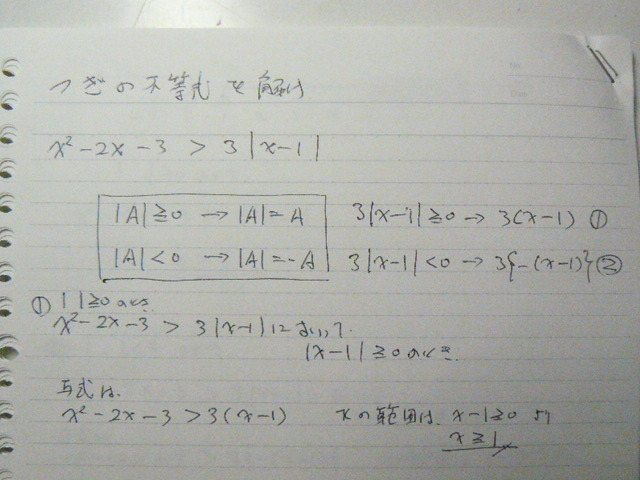 つぎの不等式を解け
x²-2x-3 > 3|x-1|
|A|≧0 → |A|=A
|A|<0 → |A|=-A
3|x-1|≧0 → 3(x-1) ①
3|x-1|<0 → 3{-(x-1)} ②
① | |≧0のとき
x²-2x-3 > 3|x-1|において、
|x-1|≧0のとき、
与式は、
x²-2x-3 > 3(x-1)
xの範囲は、x-1≧0 より
x≧1